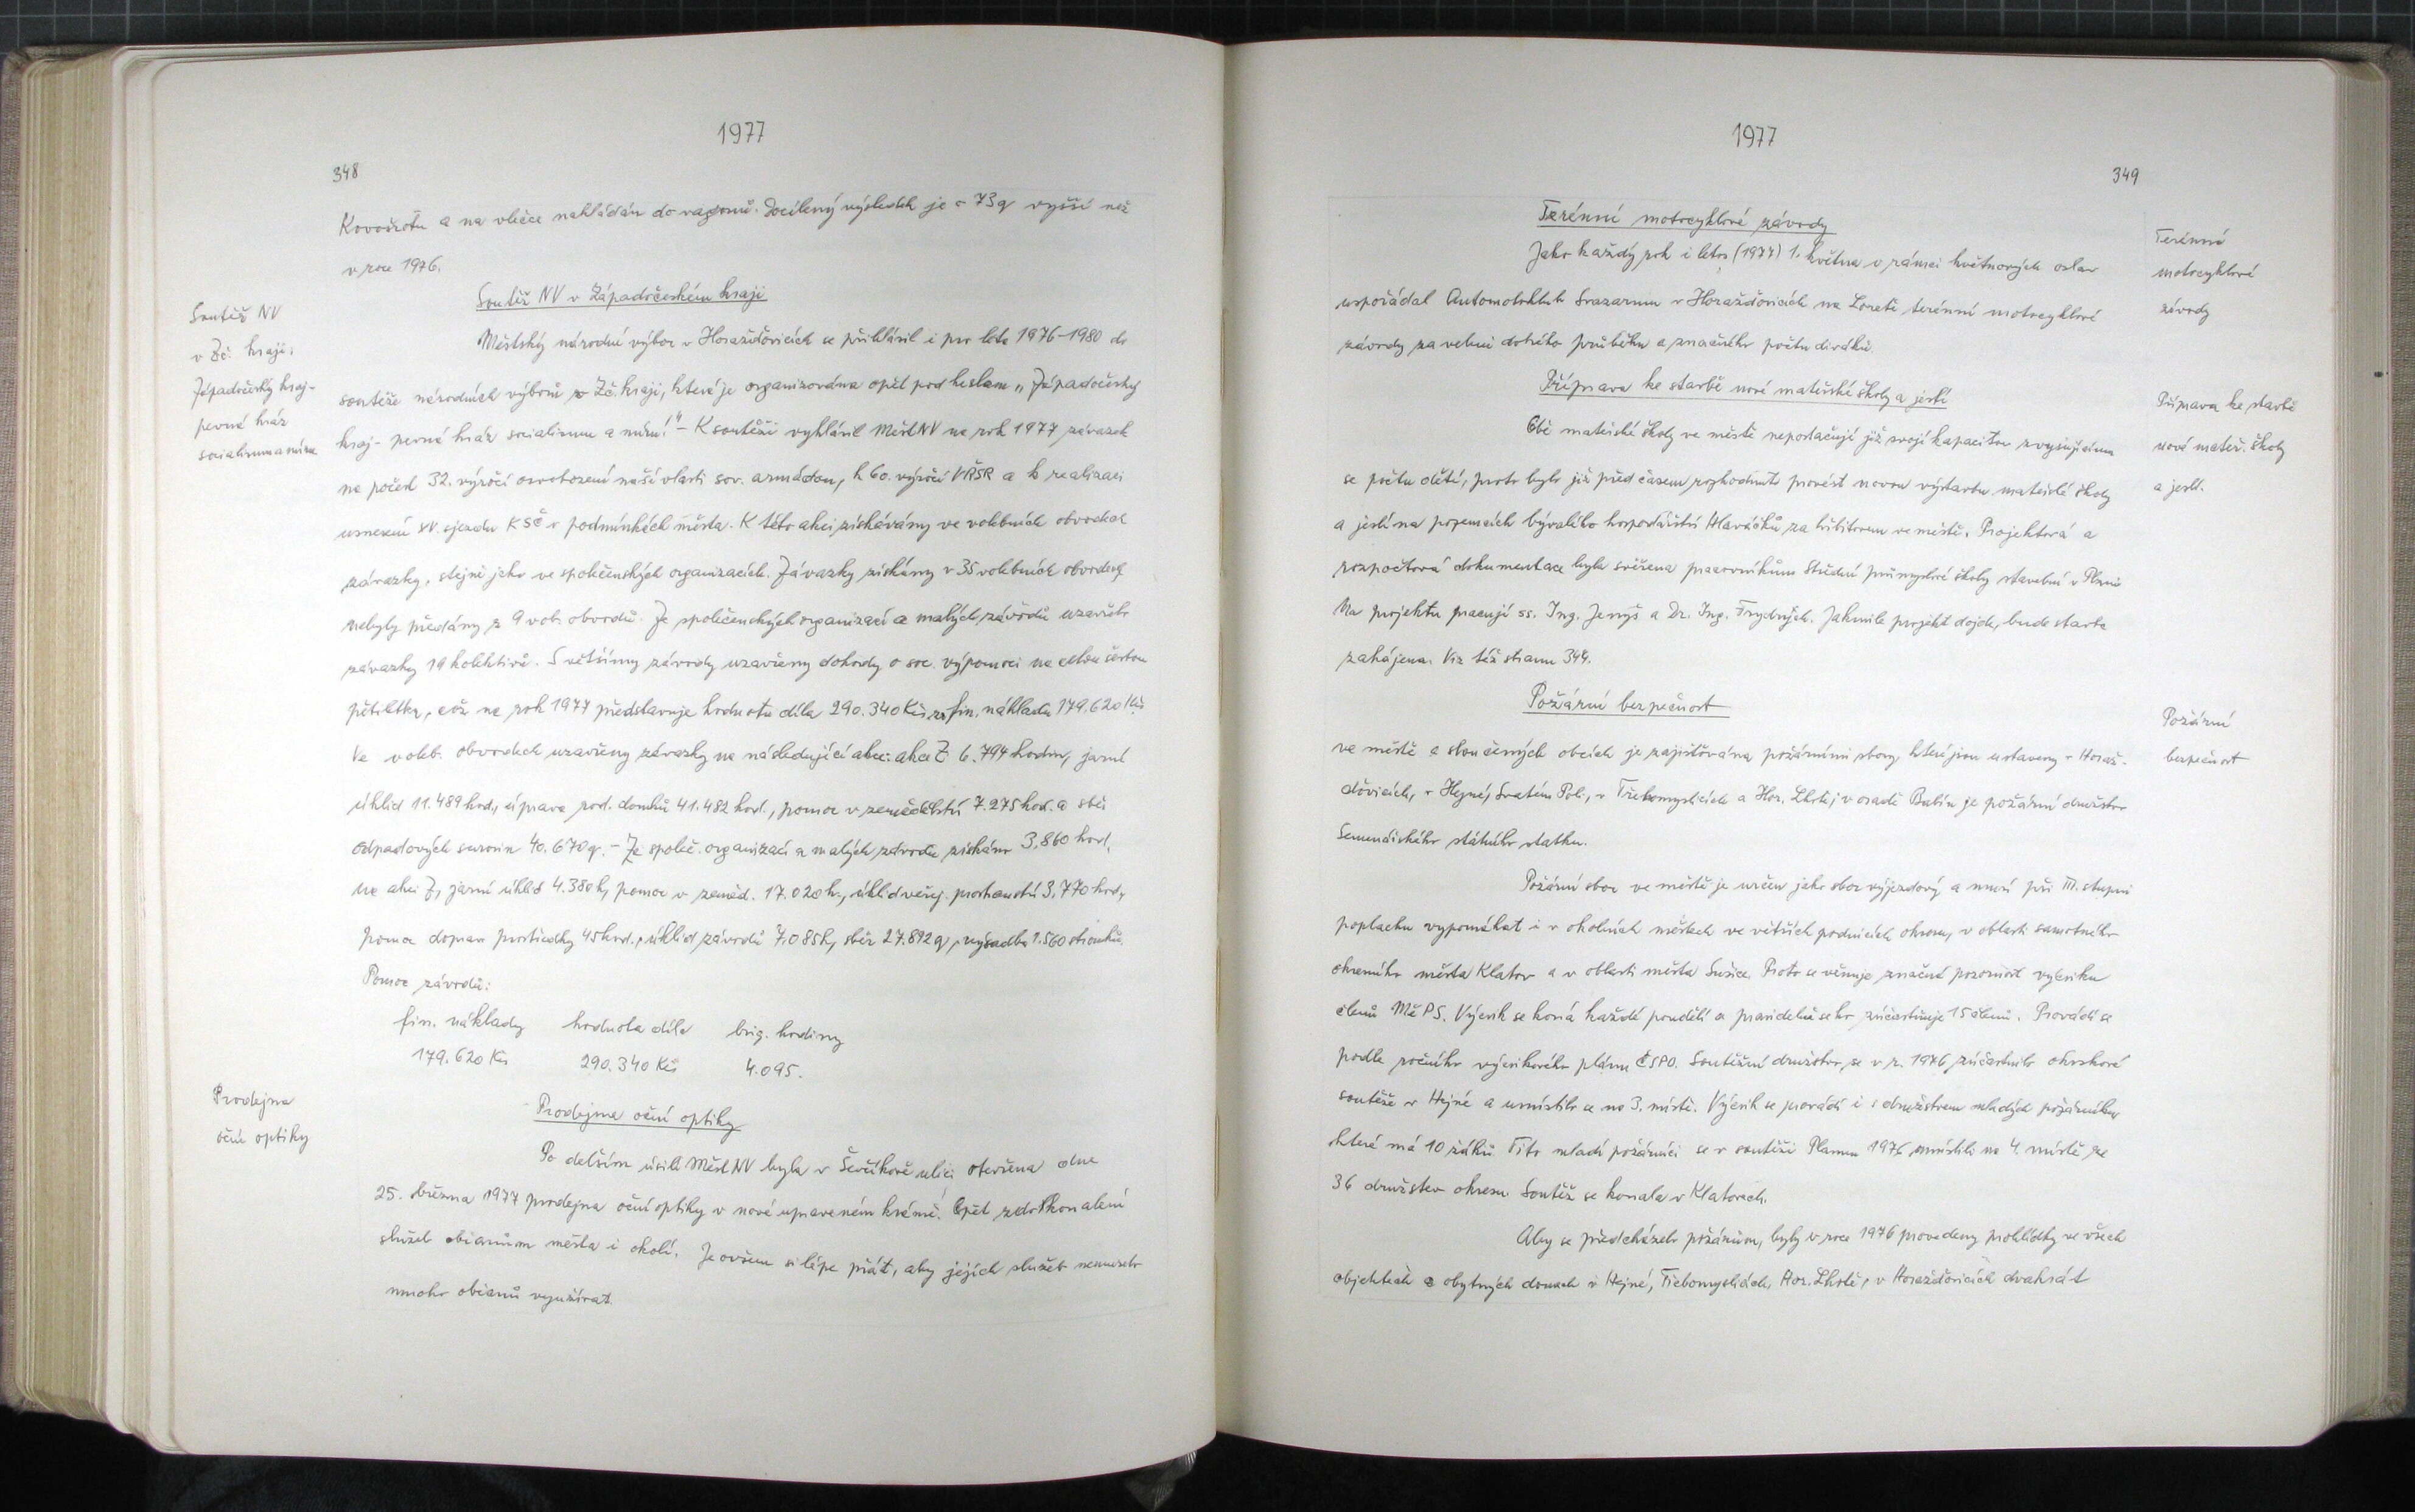 1977
348
Kovošrotu a na vlečce nakládán do vagonů. Docílený výsledek je o 73 q vyšší než
v roce 1976.
Soutěž NV
v Zč. kraji:
Západočeský kraj-
pevná hráz
socialismu a míru
Soutěž NV v Západočeském kraji
Městský národní výbor v Horažďovicích se přihlásil i pro léta 1976-1980 do
soutěže národních výborů v Zč. kraji, která je organizována opět pod heslem „Západočeský
kraj - pevná hráz socialismu a míru!" - K soutěži vyhlásil MěstNV na rok 1977 závazek
na počest 32. výročí osvobození naší vlasti sov. armádou, k 60. výročí VŘSR a k realizaci
usnesení XV. sjezdu KSČ v podmínkách města. K této akci získávány ve volebních obvodech
závazky, stejně jako ve společenských organizacích. Závazky získány v 35 volebních obvodech,
nebyly předány z 9 vol. obvodů. Ze společenských organizací a malých závodů uzavřelo
závazky 19 kolektivů. S většinou závody uzavřeny dohody o soc. výpomoci na celou šestou
pětiletku, což na rok 1977 představuje hodnotu díla 290.340 Kčs za fin. nákladu 179.620 Kčs
Ve voleb. obvodech uzavřeny závazky na následující akce: akce Z 6.794 hodin, jarní
úklid 11.489 hod., úprava rod. domků 41.482 hod., pomoc v zemědělství 7.275 hod. a sběr
odpadových surovin 40.670 q. - Ze společ. organizací a malých závodů získáno 3.860 hod.
na akci Z, jarní úklid 4.380 h, pomoc v zeměd. 17.020 h., úklid veřej. prostranství 3.770 hod.,
pomoc doprav. prostředky 45 hod., úklid závodů 7.085 h, sběr 27.892 q, výsadba 1.560 stromků.
Pomoc závodů:
fin. náklady hodnota díla brig. hodiny
179.620 Kčs 290.340 Kčs 4.095.
Prodejna
oční optiky
Prodejna oční optiky
Po delším úsilí MěstNV byla v Ševčíkově ulici otevřena dne
25. března 1977 prodejna oční optiky v nově upraveném krámě. Opět zdokonalení
služeb občanům města i okolí. Je ovšem si lépe přát, aby jejích služeb nemuselo
mnoho občanů využívat.
1977
349
Terénní motocyklové závody
Terénní
motocyklové
závody
Jako každý rok i letos (1977) 1. května v rámci květnových oslav
uspořádal Automotoklub Svazarmu v Horažďovicích na Loretě terénní motocyklové
závody za velmi dobrého průběhu a značného počtu diváků.
Příprava ke stavbě nové mateřské školy a jeslí
Příprava ke stavbě
nové mateř. školy
a jeslí.
Obě mateřské školy ve městě nepostačují již svojí kapacitou zvyšujícímu
se počtu dětí, proto bylo již před časem rozhodnuto provést novou výstavbu mateřské školy
a jeslí na pozemcích bývalého hospodářství Hlaváčků za hřbitovem ve městě. Projektová a
rozpočtová dokumentace byla svěřena pracovníkům Střední průmyslové školy stavební v Plzni
Na projektu pracují ss. Ing. Jenyš a Dr. Ing. Frydrych. Jakmile projekt dojde, bude stavba
zahájena. Viz též stranu 344.
Požární bezpečnost
Požární
bezpečnost
ve městě a sloučených obcích je zajišťována požárními sbory, které jsou ustaveny v Horaž-
ďovicích, v Hejné, Svatém Poli, v Třebomyslicích a Hor. Lhotě; v osadě Babín je požární družstvo
Semenářského státního statku.
Požární sbor ve městě je určen jako sbor výjezdový a musí při III. stupni
poplachu vypomáhat i v okolních městech ve větších podnicích okresu, v oblasti samotného
okresního města Klatov a v oblasti města Sušice. Proto se věnuje značná pozornost výcviku
členů MěPS. Výcvik se koná každé pondělí a pravidelně se ho zúčastňuje 15 členů. Provádí se
podle ročního výcvikového plánu ČSPO. Soutěžní družstvo se v r. 1976 zúčastnilo okrskové
soutěže v Hejné a umístilo se na 3. místě. Výcvik se provádí i s družstvem mladých požárníků,
které má 10 žáků. Tito mladí požárníci se v soutěži Plamen 1976 umístili na 4. místě ze
36 družstev okresu. Soutěž se konala v Klatovech.
Aby se předcházelo požárům, byly v roce 1976 provedeny prohlídky ve všech
objektech a obytných domech v Hejné, Třebomyslicích, Hor. Lhotě, v Horažďovicích dvakrát